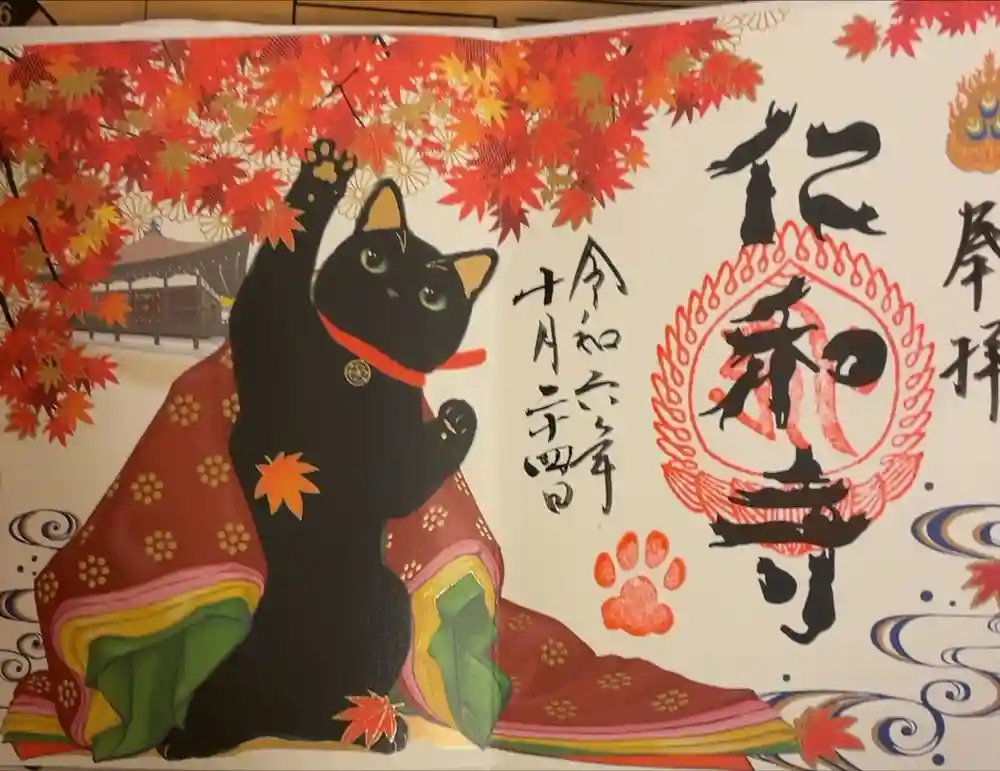 奉拝
仁和寺
令和六年
十月二十四日
6